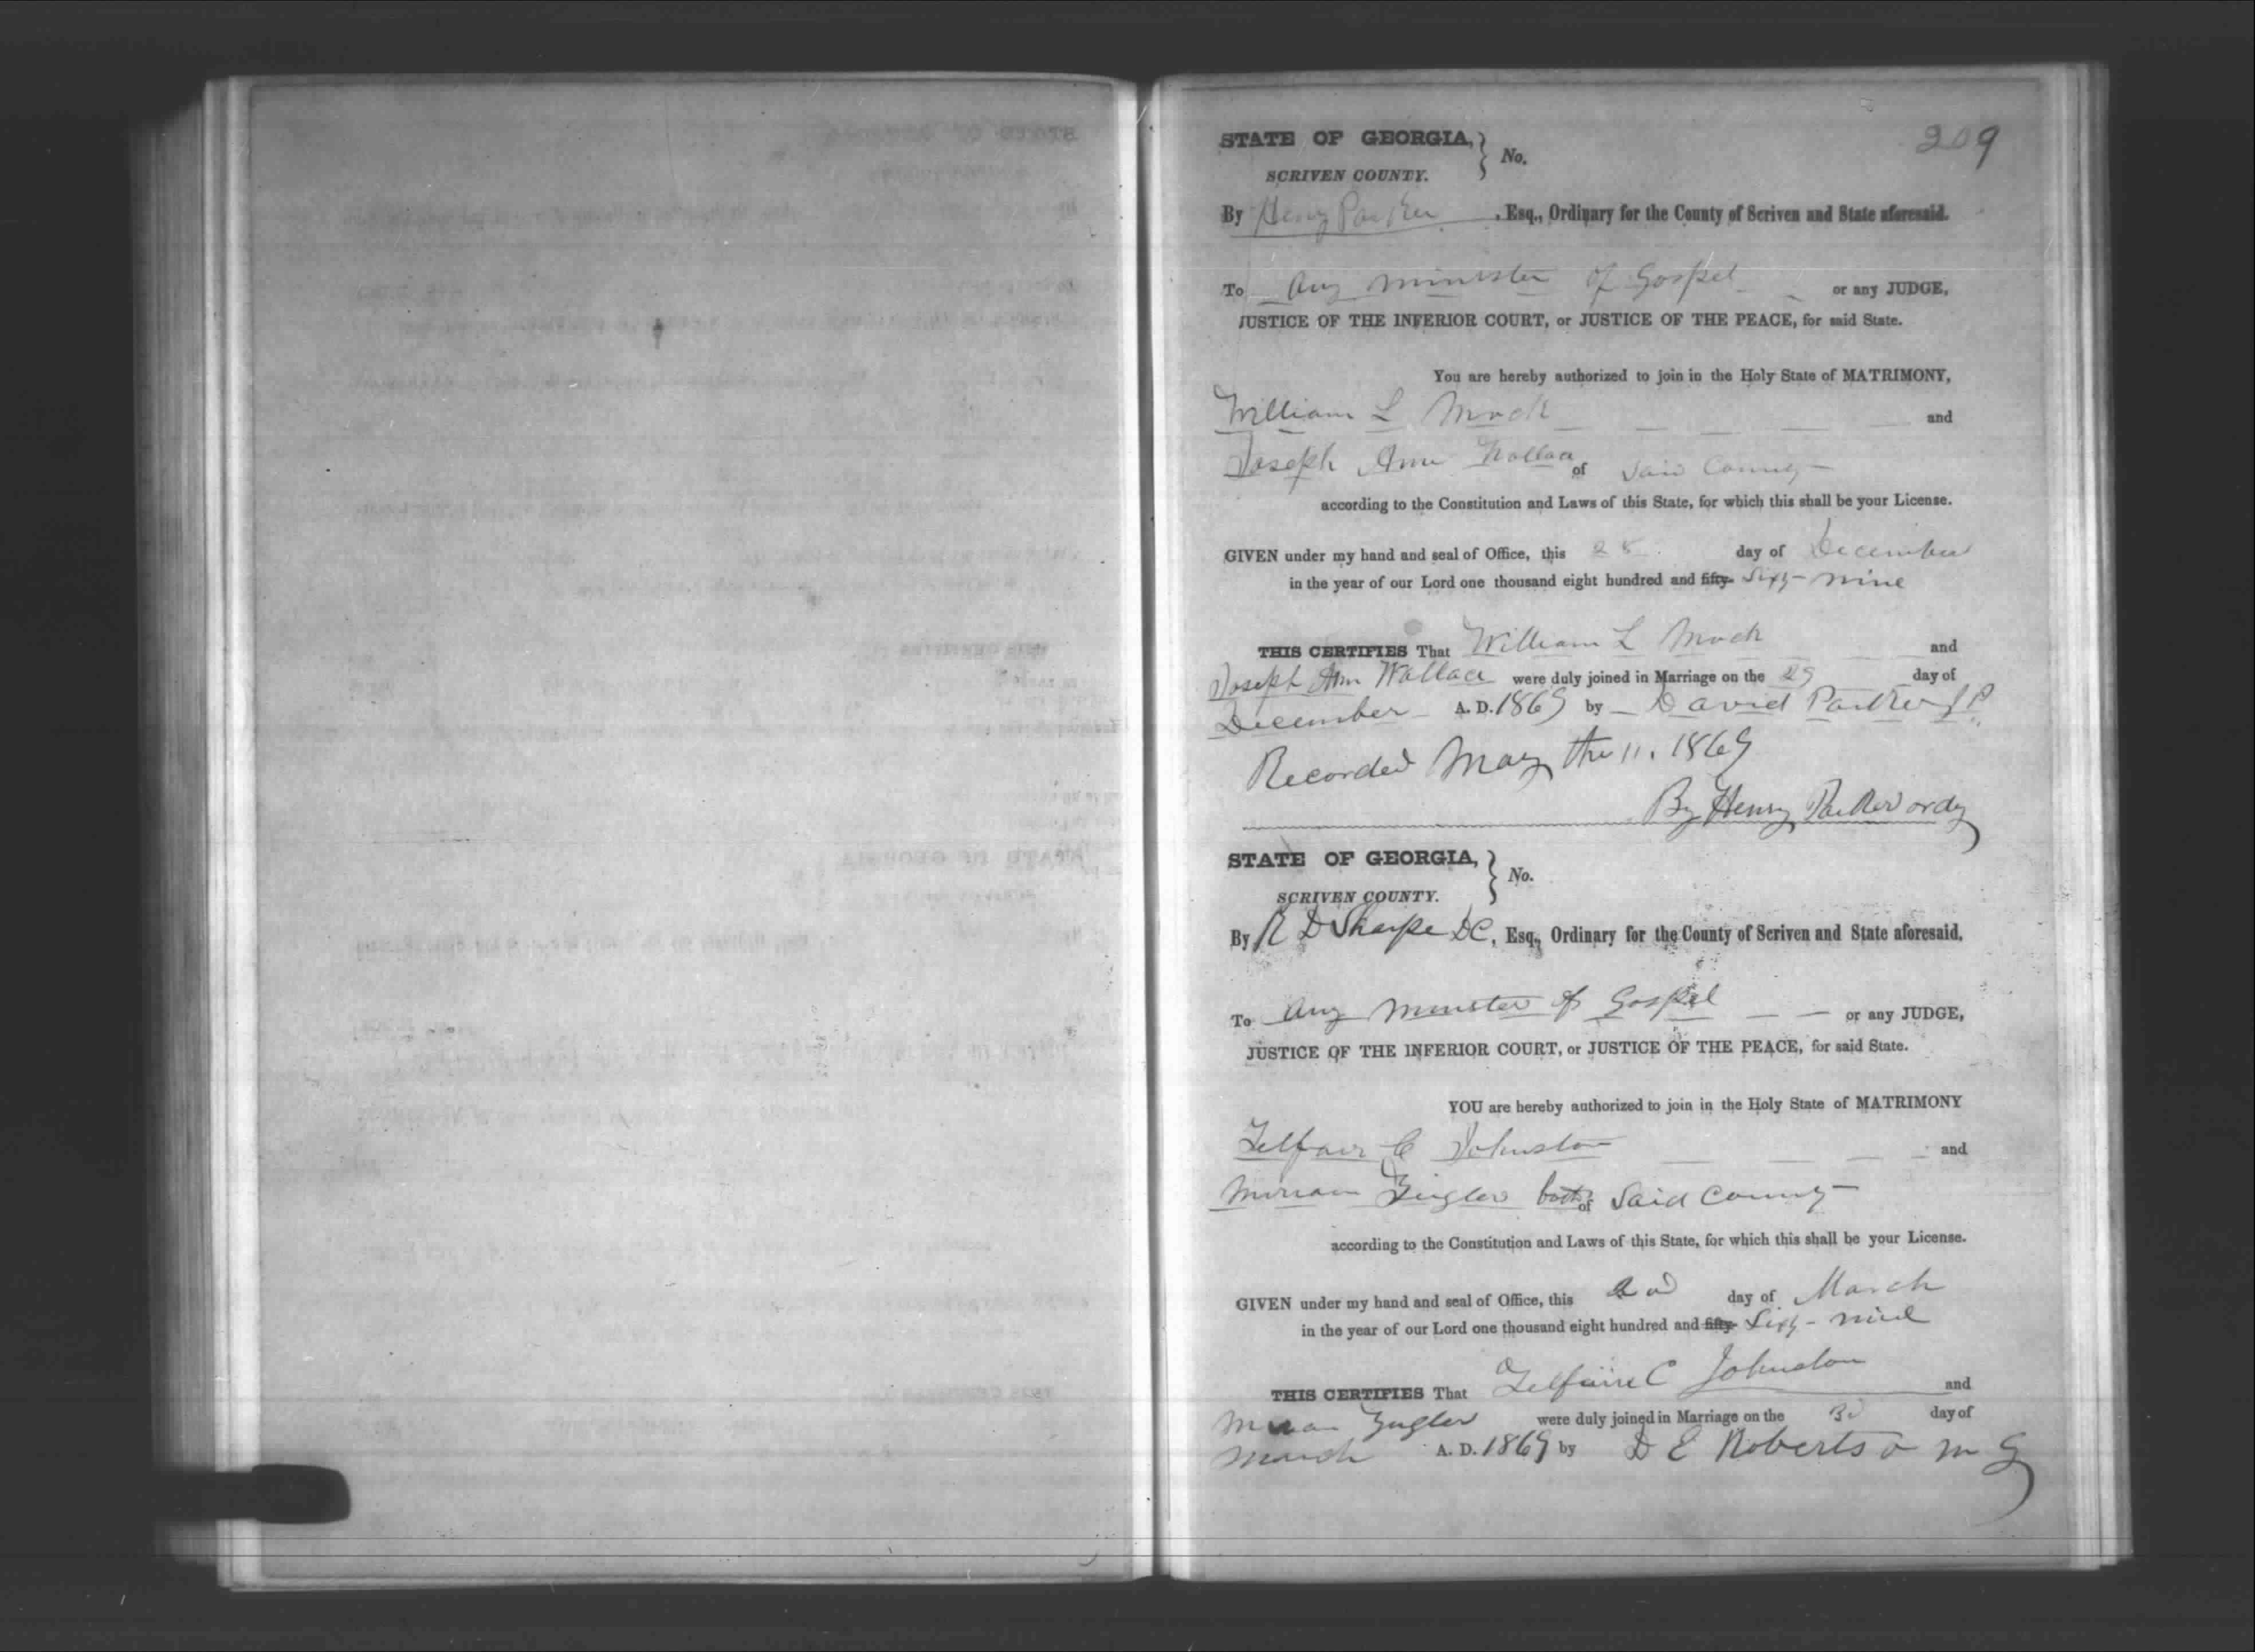 209
STATE OF GEORGIA, } No.
SCRIVEN COUNTY.
By Henry Parker, Esq., Ordinary for the County of Scriven and State aforesaid.
To any minister of Gospel or any JUDGE,
JUSTICE OF THE INFERIOR COURT, or JUSTICE OF THE PEACE, for said State.
You are hereby authorized to join in the Holy State of MATRIMONY,
William L Mock and
Joseph Ann Wallace of Said County
according to the Constitution and Laws of this State, for which this shall be your License.
GIVEN under my hand and seal of Office, this 28 day of December
in the year of our Lord one thousand eight hundred and fifty- Sixty-nine
THIS CERTIFIES That William L Mock and
Joseph Ann Wallace were duly joined in Marriage on the 29 day of
December A. D. 1869 by David Parker J P
Recorded May the 11. 1869
By Henry Parker ordy
STATE OF GEORGIA, } No.
SCRIVEN COUNTY.
By R D Sharpe DC, Esq., Ordinary for the County of Scriven and State aforesaid.
To any Minister of Gospel or any JUDGE,
JUSTICE OF THE INFERIOR COURT, or JUSTICE OF THE PEACE, for said State.
YOU are hereby authorized to join in the Holy State of MATRIMONY
Telfair C Johnston and
Miriam Zeigler both of Said County
according to the Constitution and Laws of this State, for which this shall be your License.
GIVEN under my hand and seal of Office, this 2d day of March
in the year of our Lord one thousand eight hundred and fifty- Sixty-nine
THIS CERTIFIES That Telfaire C Johnston and
Zeigler were duly joined in Marriage on the 3d day of
March A. D. 1869 by D E Roberts M G